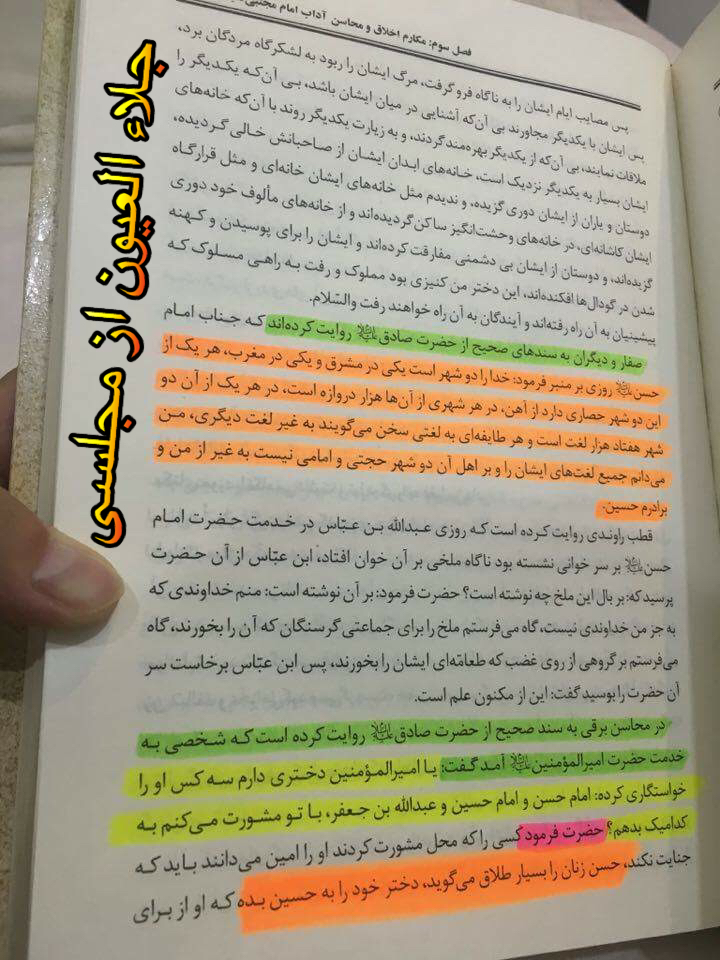 فصل سوم: مکارم اخلاق و محاسن آداب امام مجتبی
پس مصایب ایام ایشان را به ناگاه فرو گرفت، مرگ ایشان را ربود به لشکرگاه مردگان برد،
پس ایشان با یکدیگر مجاورند بی آن‌که آشنایی در میان ایشان باشد، بی آن‌که یکدیگر را
ملاقات نمایند، بی آن‌که از یکدیگر بهره‌مند گردند، و به زیارت یکدیگر روند با آن‌که خانه‌های
ایشان بسیار به یکدیگر نزدیک است، خانه‌های ابدان ایشان از صاحبانش خالی گردیده،
دوستان و یاران از ایشان دوری گزیده، و ندیدم مثل خانه‌های ایشان خانه‌ای و مثل قرارگاه
ایشان کاشانه‌ای، در خانه‌های وحشت‌انگیز ساکن گردیده‌اند و از خانه‌های مألوف خود دوری
گزیده‌اند، و دوستان از ایشان بی دشمنی مفارقت کرده‌اند و ایشان را برای پوسیدن و کهنه
شدن در گودال‌ها افکنده‌اند، این دختر من کنیزی بود مملوک و رفت به راهی مسلوک که
پیشینیان به آن راه رفته‌اند و آیندگان به آن راه خواهند رفت والسّلام.
صفار و دیگران به سندهای صحیح از حضرت صادق علیه‌السلام روایت کرده‌اند که جناب امام
حسن علیه‌السلام روزی بر منبر فرمود: خدا را دو شهر است یکی در مشرق و یکی در مغرب، هر یک از
این دو شهر حصاری دارد از آهن، در هر شهری از آن‌ها هزار دروازه است، در هر یک از آن دو
شهر هفتاد هزار لغت است و هر طایفه‌ای به لغتی سخن می‌گویند به غیر لغت دیگری، من
می‌دانم جمیع لغت‌های ایشان را و بر اهل آن دو شهر حجتی و امامی نیست به غیر از من و
برادرم حسین.
قطب راوندی روایت کرده است که روزی عبدالله بن عبّاس در خدمت حضرت امام
حسن علیه‌السلام بر سر خوانی نشسته بود ناگاه ملخی بر آن خوان افتاد، ابن عبّاس از آن حضرت
پرسید که: بر بال این ملخ چه نوشته است؟ حضرت فرمود: بر آن نوشته است: منم خداوندی که
به جز من خداوندی نیست، گاه می‌فرستم ملخ را برای جماعتی گرسنگان که آن را بخورند، گاه
می‌فرستم بر گروهی از روی غضب که طعامهای ایشان را بخورند، پس ابن عبّاس برخاست سر
آن حضرت را بوسید گفت: این از مکنون علم است.
در محاسن برقی به سند صحیح از حضرت صادق علیه‌السلام روایت کرده است که شخصی به
خدمت حضرت امیرالمؤمنین علیه‌السلام آمد گفت: یا امیرالمؤمنین دختری دارم سه کس او را
خواستگاری کرده: امام حسن و امام حسین و عبدالله بن جعفر، با تو مشورت می‌کنم به
کدامیک بدهم؟ حضرت فرمود کسی را که محل مشورت کردند او را امین می‌دانند باید که
جنایت نکند، حسن زنان را بسیار طلاق می‌گوید، دختر خود را به حسین بده که او از برای
جلاء العیون از مجلسی